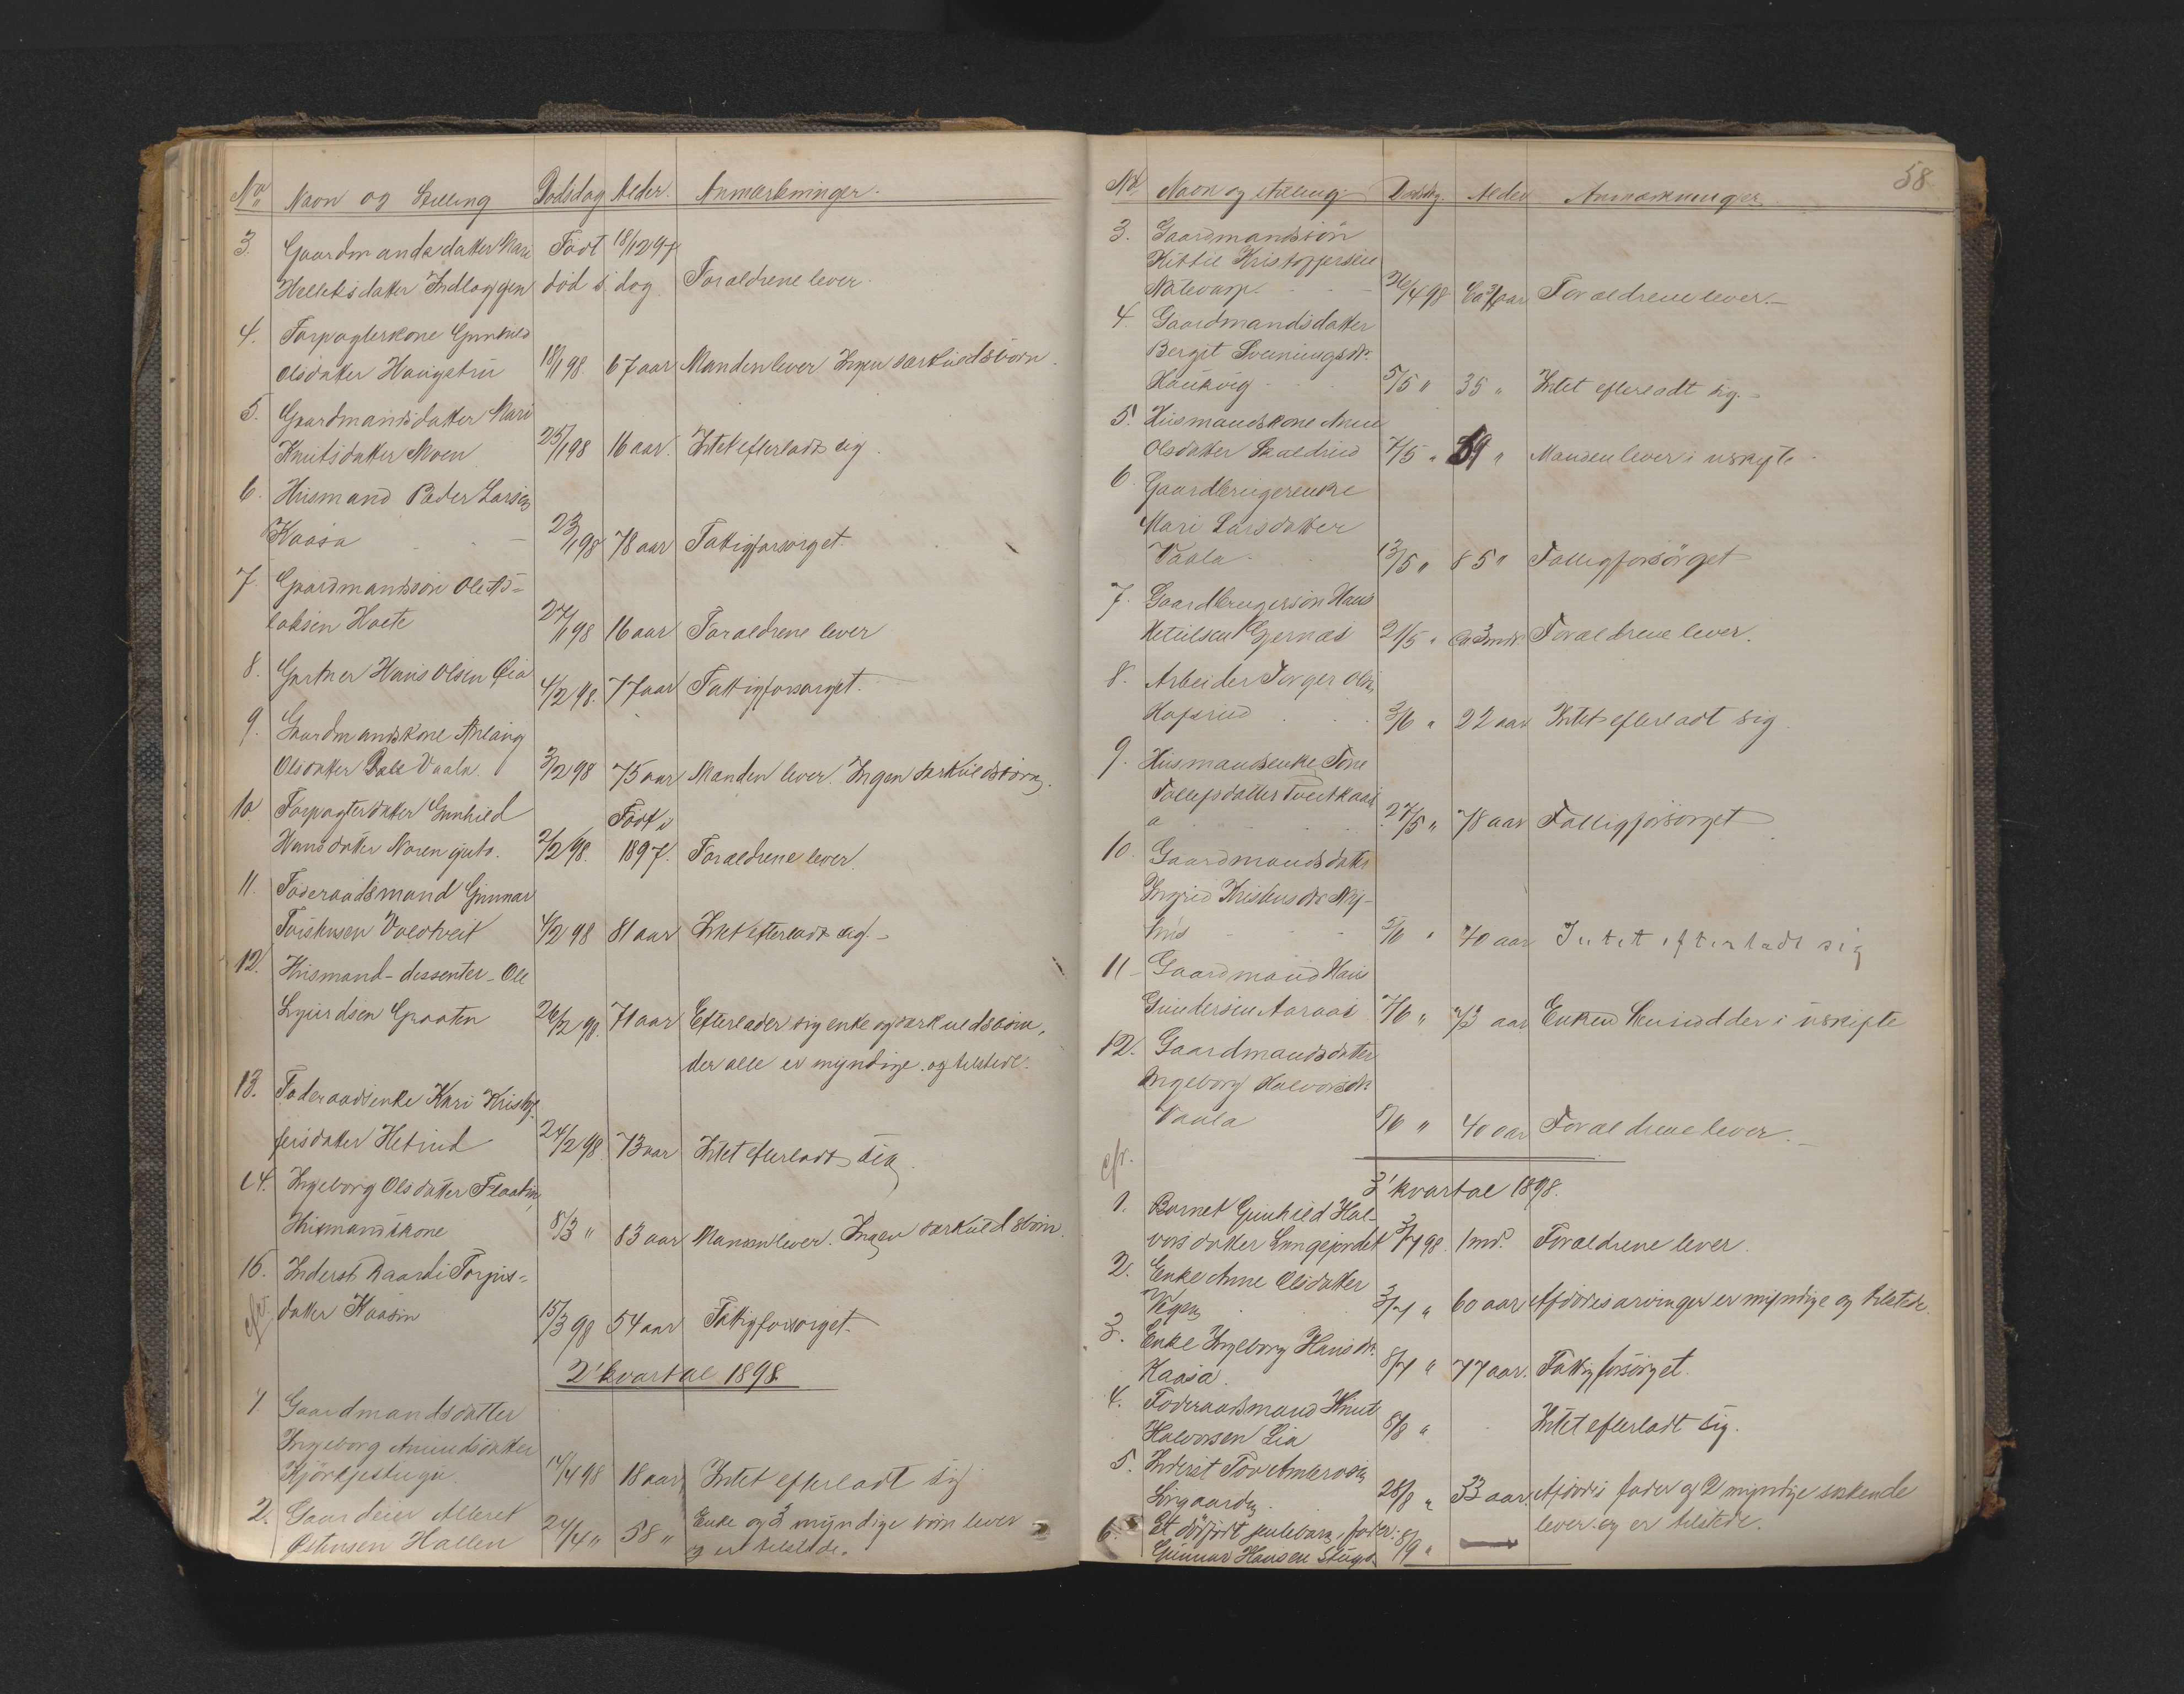 No Navn og Stilling Dødsdag Alder. Anmærkninger.
3. Gaardmandsdatter Mari Født 18/12 97
Halleksdatter Indloggen død s. dag. Forældrene lever.
4. Forpagterkone Gunhild
Olsdatter Haugetun 18/1 98 67 aar Manden lever Ingen særkuldsbørn.
5. Gaardmandsdatter Mari
Knutsdatter Moen 25/1 98 16 aar. Intet efterladt sig.
6. Husmand Peder Larsen
Kaasa 23/1 98 78 aar Fattigforsørget.
7. Gaardmandssøn Ole As=
laksen Hoete 27/1 98 16 aar Forældrene lever
8. Gartner Hans Olsen Øia 4/2 98. 77 aar Fattigforsørget.
9. Gaardmandskone Aslaug
Olsdatter Dale Vaala. 3/2 98 75 aar Manden lever. Ingen særkuldsbørn.
10. Forpagterdatter Gunhild Født i
Hansdatter Moren 2/2 98. 1897. Forældrene lever.
11. Føderaadsmand Gunnar
Torstensen Valdtveit 4/2 98 81 aar Intet efterladt sig.
12. Husmand - dissenter - Ole
Sjurdsen Graaten 26/2 98. 71 aar Efterlader sig enke og særkuldsbørn,
der alle er myndige og tilstede.
13. Føderaadsenke Kari Kristof-
fersdatter Hetrud 24/2 98. 73 aar Intet efterladt sig.
14. Ingeborg Olsdatter Flaatin,
Husmandskone 8/3 " 83 aar Manden lever. Ingen særkuldsbørn.
15. Inderst Taardi Torgus=
cfr. datter Kaasin 15/3 98 54 aar Fattigforsørget.
2' kvartal 1898.
1. Gaardmandsdatter
Ingeborg Amundsdatter
Kjørkjestugu. 14/4 98 18 aar Intet efterladt sig
2. Gaardeier Alleret 24/4 " 58 " Enke og 3 myndige børn lever
Østensen Hallen og er tilstede.
58.
No Navn og Stilling Dødsdag. Alder Anmærkninger
3. Gaardmandssøn
Kittil Kristoffersen
Natevarp. 26/4 98 Ca 3/4 aar Forældrene lever.
4. Gaardmandsdatter
Bergit Sveinungsdr.
Haukvig 5/5 " 35 " Intet efterladt sig.
5. Husmandskone Anne
Olsdatter Skaldrud 7/5 " 59 " Manden lever i uskifte.
6. Gaardbrugerenke
Mari Larsdatter
Vaala 13/5 " 85 " Fattigforsørget
7. Gaardbrugersøn Hans
Ketilsen Gjernæs 21/5 " Ca 3 mdr. Forældrene lever.
8. Arbeider Torger Olsen
Hofsrud 3/6 " 22 aar Intet efterladt sig.
9. Husmandsenke Tone
Tollefsdatter Tveitkaas
a 27/5 " 78 aar Fattigforsørget
10. Gaardmandsdatter
Ingrid Kristensdr Ny-
hus 5/6 " 40 aar Intet efterladt sig
11. Gaardmand Hans
Gundersen Aaraas 7/6 " 73 aar Enken hensidder i uskifte
12. Gaardmandsdatter
Ingeborg Halvorsdr.
Vaala 8/6 " 40 aar Forældrene lever.
cfr.
3' kvartal 1898.
1. Barnet Gunhild Hal-
vorsdatter Lungejordet 3/7 98. 1 md. Forældrene lever.
2. Enke Anne Olsdatter
3/7 " 60 aar Afdødes arvinger er myndige og tilstede.
3. Enke Ingeborg Hansdr.
Kaasa. 8/7 " 77 aar. Fattigforsørget.
4. Føderaadsmand Knut
Halvorsen Lia 8/8 " Intet efterladt sig.
5. Inderst Tov Ambrosen
Lirgaarden. 28/8 " 33 aar. Afdødes fader og 2 myndige søskende
lever og er tilstede.
6. Et dødfødt pulebarn, fader: 8/9 " —
Gunnar Hansen Stugo.